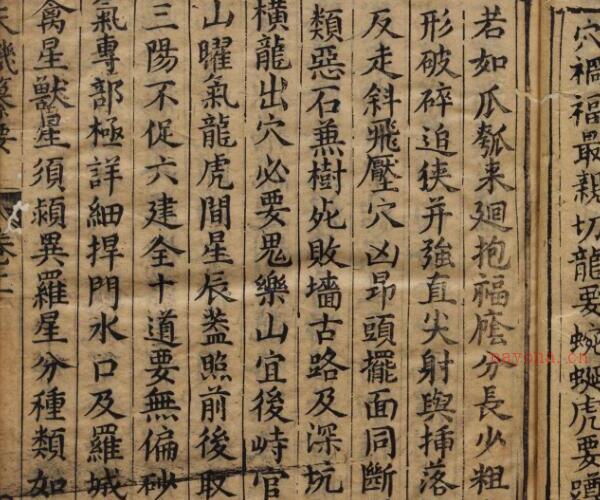 穴禍福最親切龍要蜿蜒虎要蹲
若如瓜瓠来廻抱福廕分長少粗
形破碎迫狭并強直尖射與揷落
反走斜飛壓穴凶昂頭擺面同斷
類惡石兼樹死敗墻古路及深坑
橫龍出穴必要鬼樂山宜後峙官
山曜氣龍虎間星辰葢照前後取
三陽不促六建全十道要無偏砂
氣專部極詳細捍門水口及羅城
禽星獸星須頴異羅星分種類如
天機纂要 卷二
nayona.cn